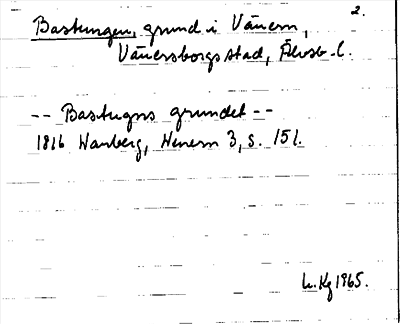 2.
Bastungen, grund i Vänern,
Vänersborgs stad, Älvsb. l.
-- Bastugns grundet --
1816 Warberg, Wenern 3, s. 151.
L. Kg 1965.